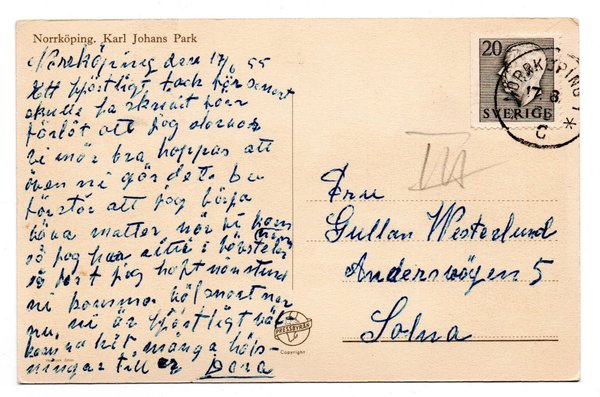 Norrköping. Karl Johans Park
Norrköping den 17/8 55
Ett hjärtligt tack för senast
skulle ha skrivit förr
förlåt att jag dröjer
vi mår bra, hoppas att
även ni gör det.
förstår att jag börja
väva mattor när vi kom
så jag har sittit i
så fort jag haft
ni komma hälsa
nu, ni är hjärtligt väl-
komna hit många häls-
ningar till er Dora
20
SVERIGE
NORRKÖPING 1
17.8.
C
Fru
Gullan Westerlund
Andersvägen 5
Solna
PRESSBYRÅN
Copyright